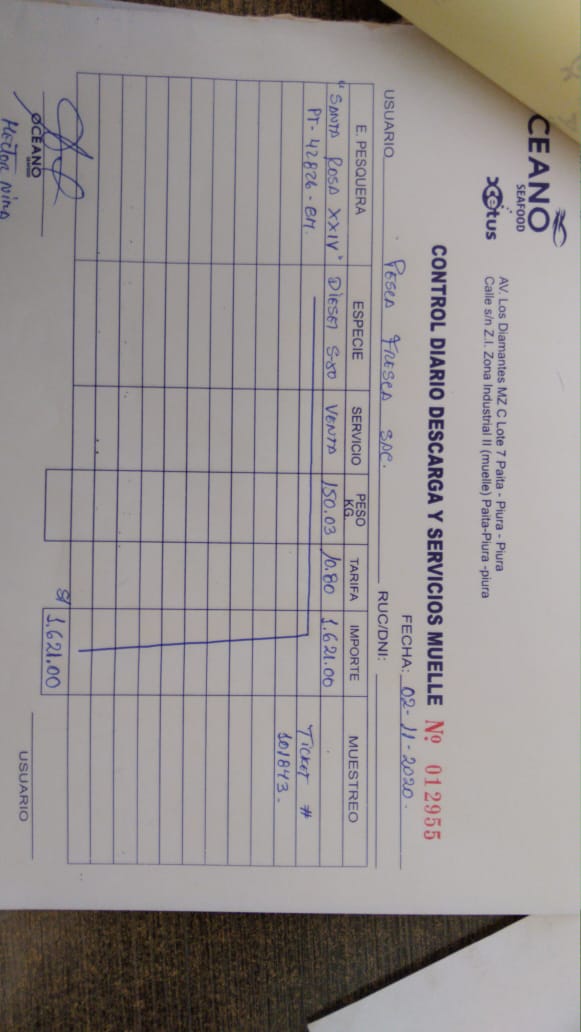 CEANO
SEAFOOD
cetus
AV. Los Diamantes MZ C Lote 7 Paita - Piura - Piura
Calle s/n Z.I. Zona Industrial II (muelle) Paita-Piura -piura
CONTROL DIARIO DESCARGA Y SERVICIOS MUELLE Nº 012955
FECHA: 02-11-2020.
USUARIO PESCA FRESCA SAC. RUC/DNI:
E. PESQUERA ESPECIE SERVICIO PESO KG. TARIFA IMPORTE MUESTREO
"SANTA ROSA XXIV" DIESEL S-50 VENTA 150.03 10.80 1.621.00
PT-42826-CM. TICKET #
101843.
S/ 1.621.00
OCEANO
SEAFOOD
USUARIO